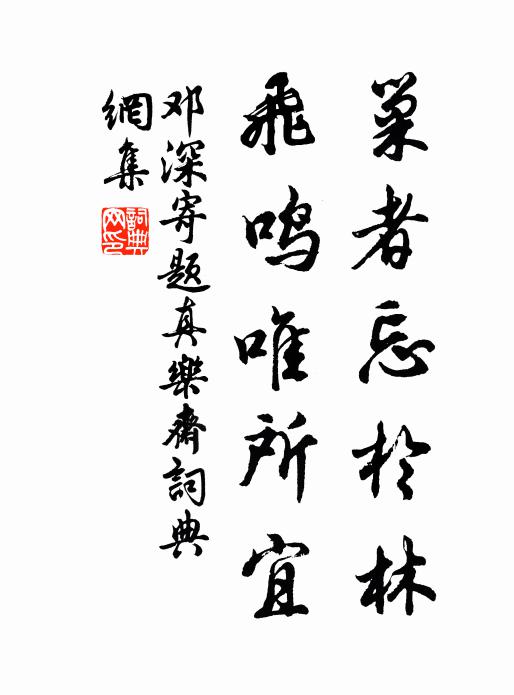 巢者忘於林
飛鸣唯所宜
邓深寄題真樂齋詞典
網集
詞典
网印